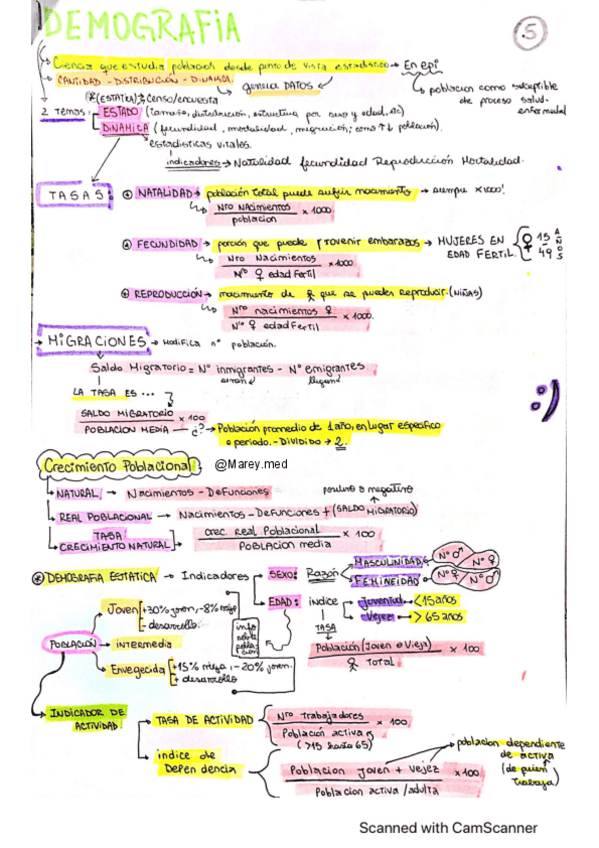 DEMOGRAFIA
5
Ciencia que estudia poblacion desde punto de vista estadistico → En epi
CANTIDAD - DISTRIBUCION - DINAMICA.
genera DATOS
poblacion como susceptible de proceso salud-enfermedad
(ESTATICA) → Censo/encuesta
2 Temas: ESTADO (tamaño, distribucion, estructura por sexo y edad, etc)
DINAMICA (fecundidad, mortalidad, migracion; como ↑↓ poblacion).
estadisticas vitales.
indicadores → Natalidad fecundidad Reproducción Mortalidad.
TASAS
NATALIDAD → población total puede sufrir nacimiento → siempre x1000!
Nro Nacimientos x 1000
poblacion
FECUNDIDAD → porción que puede provenir embarazos → MUJERES EN EDAD FERTIL. ♀ 15 49 AÑOS
Nro Nacimientos x1000
N° ♀ edad Fertil
REPRODUCCIÓN → nacimiento de ♀ que se puedes Reproducir. (NIÑAS)
Nro nacimientos ♀ x 1000.
N° ♀ edad Fertil
→ MIGRACIONES → Modifica n° población.
Saldo Migratorio = N° inmigrantes - N° emigrantes
LA TASA ES ...
SALDO MIGRATORIO x 100
POBLACION MEDIA → ¿? → Población promedio de 1 año, en lugar especifico o periodo. - DIVIDIDO → 2.
:)
Crecimiento Poblacional @Marey.med
NATURAL → Nacimientos - Defunciones
positivo o negativo
REAL POBLACIONAL → Nacimientos - Defunciones + (SALDO MIGRATORIO)
TASA CRECIMIENTO NATURAL
crec Real Poblacional x 100
Poblacion media
DEMOGRAFIA ESTATICA → Indicadores
SEXO: Razón
MASCULINIDAD N° ♂ N° ♀
FEMINEIDAD N° ♀ N° ♂
EDAD: indice
Juventud → <15 años
Vejez → > 65 años
TASA
Población (Joven o Vieja) x 100
♀ Total
POBLACION
Joven +30% joven, -8% viejo
- desarrollo.
intermedia
Envegecida +15% vieja, -20% joven.
+ desarrollo
INDICADOR DE ACTIVIDAD
TASA DE ACTIVIDAD
Nro trabajadores x 100
Población activa
(>15 hasta 65)
indice de Dependencia
Poblacion joven + vejez x100
Poblacion activa /adulta
poblacion dependiente de activa (de quien trabaja)
Scanned with CamScanner